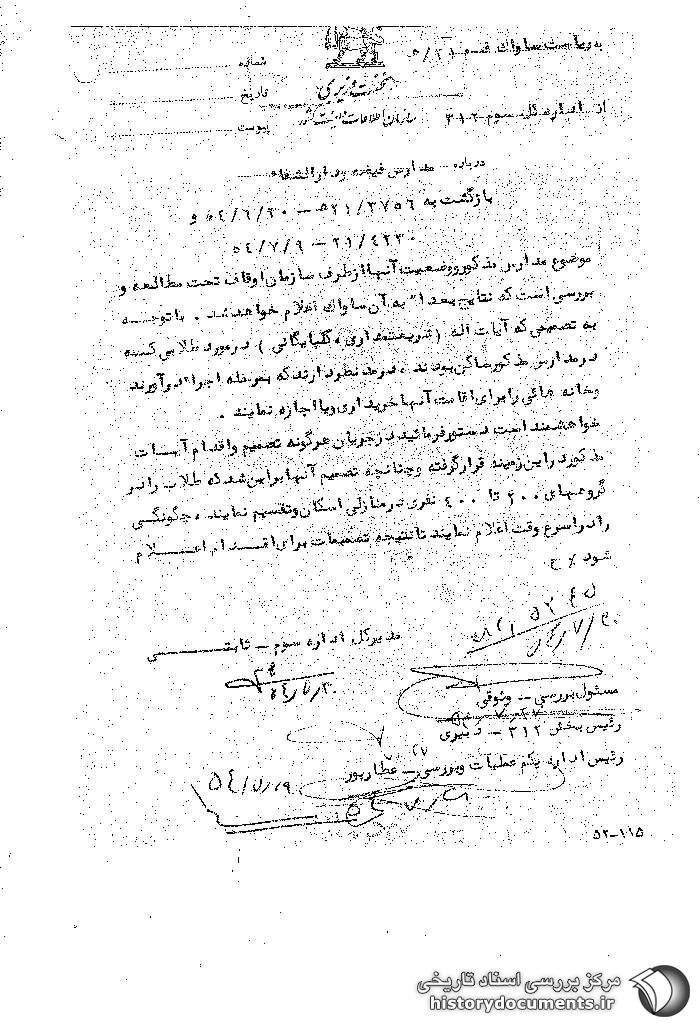 به ریاست ساواک قم ۲۱/ه
شماره
نخست وزیری
تاریخ
از اداره کل سوم ۳۱۲
سازمان اطلاعات و امنیت کشور
پیوست
درباره - مدارس فیضیه و دارالشفاء
بازگشت به ۲۱/۳۷۵۶ه - ۵۴/۶/۳۰ و
۲۱/۴۲۳۰ - ۵۴/۷/۹
موضوع مدارس مذکور و وضعیت آنها از طرف سازمان اوقاف تحت مطالعه و
بررسی است که نتایج بعدا" به آن ساواک اعلام خواهد شد . با توجه
به تصمیمی که آیات اله ( شریعتمداری ، گلپایگانی ) در مورد طلابی که
در مدارس مذکور ساکن بودند ، در مد نظر دارند که بمرحله اجرا درآورند
و خانه هائی را برای اقامت آنها خریداری و یا اجاره نمایند .
خواهشمند است دستور فرمائید در جریان هرگونه تصمیم و اقدام آیات
مذکور در این زمینه قرار گرفته و چنانچه تصمیم آنها بر این شد که طلاب را در
گروههای ۲۰۰ تا ۴۰۰ نفری در منازلی اسکان و تقسیم نمایند ، چگونگی
را در اسرع وقت اعلام نمایند تا نتیجه تصمیمات برای اقدام اعلام
شود / ح
مدیرکل اداره سوم - ثابتی
مسئول بررسی - وثوقی
رئیس بخش ۳۱۲ - دبیری
رئیس اداره یکم عملیات و بررسی - عطارپور
۵۲-۱۱۵
مرکز بررسی اسناد تاریخی
historydocuments.ir